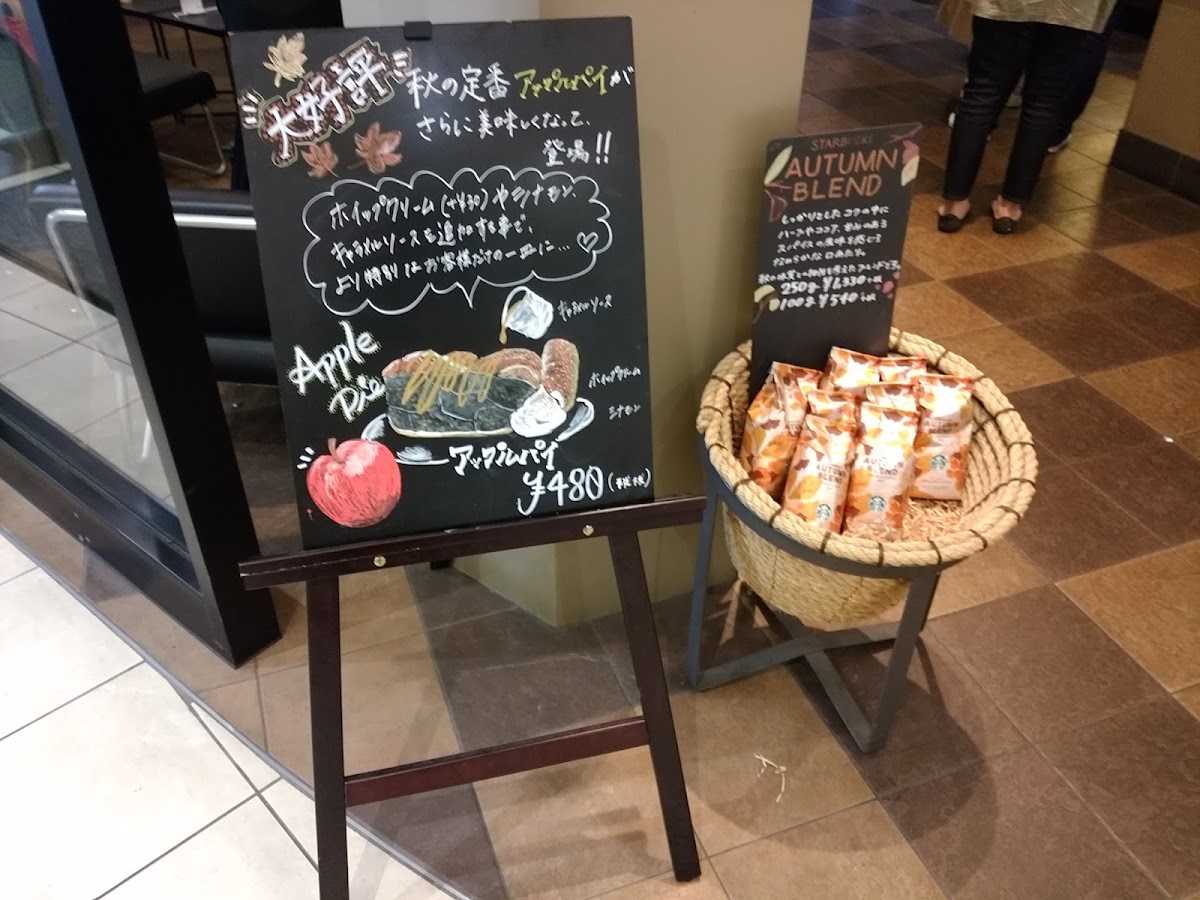 大好評
秋の定番 アップルパイが
さらに美味しくなって、
登場!!
ホイップクリーム(+¥30)やシナモン、
キャラメルソースを追加する事で、
より特別なお客様だけの一皿に...♡
キャラメルソース
Apple
Pie
ホイップクリーム
シナモン
アップルパイ
¥480(+税)
STARBUCKS
AUTUMN
BLEND
しっかりとしたコクの中に
ハーブやココア、甘みのある
スパイスの風味を感じる
なめらかな口あたり。
250g ¥1,330 +税
100g ¥540 +税
AUTUMN
BLEND
AUTUMN
BLEND